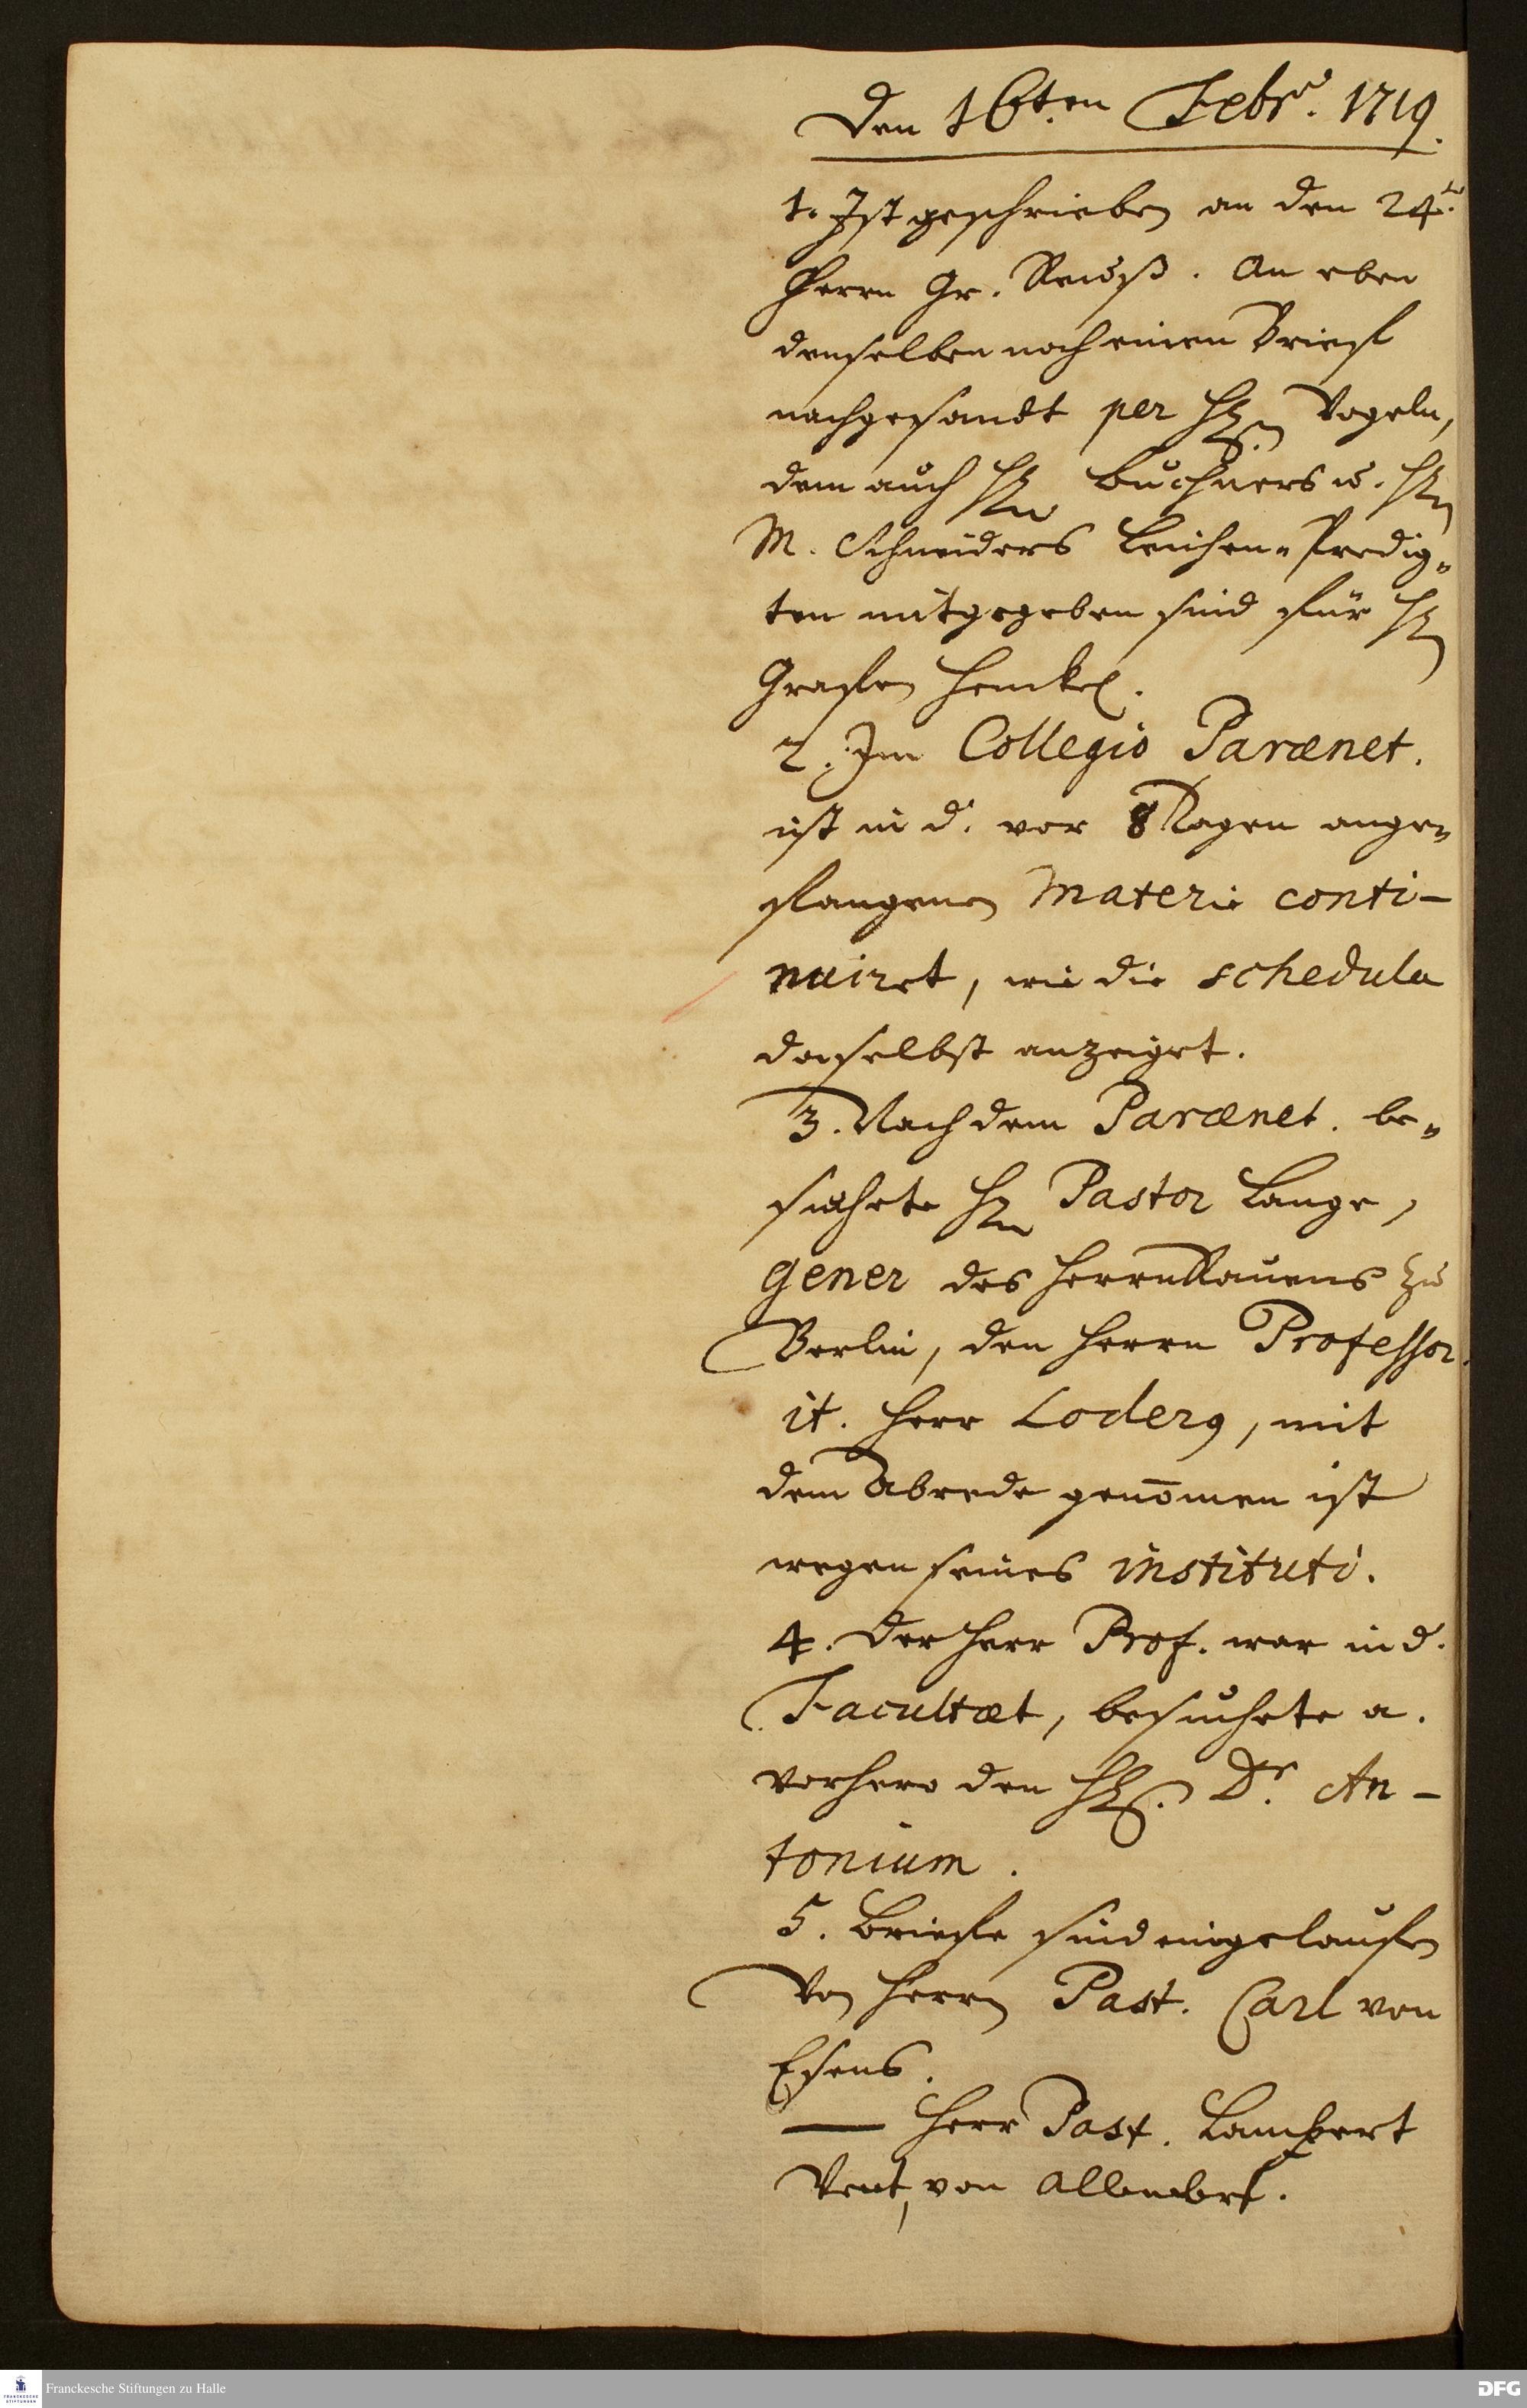 Den 16t.en Febr. 1719.
1. Ist geschrieben an den 24.
Herrn Gr. Reuß. An eben
denselben noch einen Brief
nachgesandt per H. Vogeln,
dem auch H. Buchners u. H.
M. Schneiders Leichen-Predig-
ten mitgegeben sind für H.
Grafen Henckel.
2. Im Collegio Parænet.
ist in d. vor 8 Tagen ange-
fangenen Materie conti-
nuiret, wie die schedula
daselbst anzeiget.
3. Nach dem Parænet. be-
suchete H. Pastor Lange,
gener des Herrn Rauens zu
Berlin, den Herrn Professor.
it. Herr Loders, mit
dem Abrede genom̄en ist
wegen seines instituti.
4. Der Herr Prof. war in d.
Facultæt, besuchete a.
vorhero den H. Dr. An-
tonium.
5. Briefe sind eingelaufen
Von Herrn Past. Carl von
Esens.
— Herr Past. Lampert
Vent, von Allendorf.
Franckesche Stiftungen zu Halle
FRANCKESCHE STIFTUNGEN
DFG